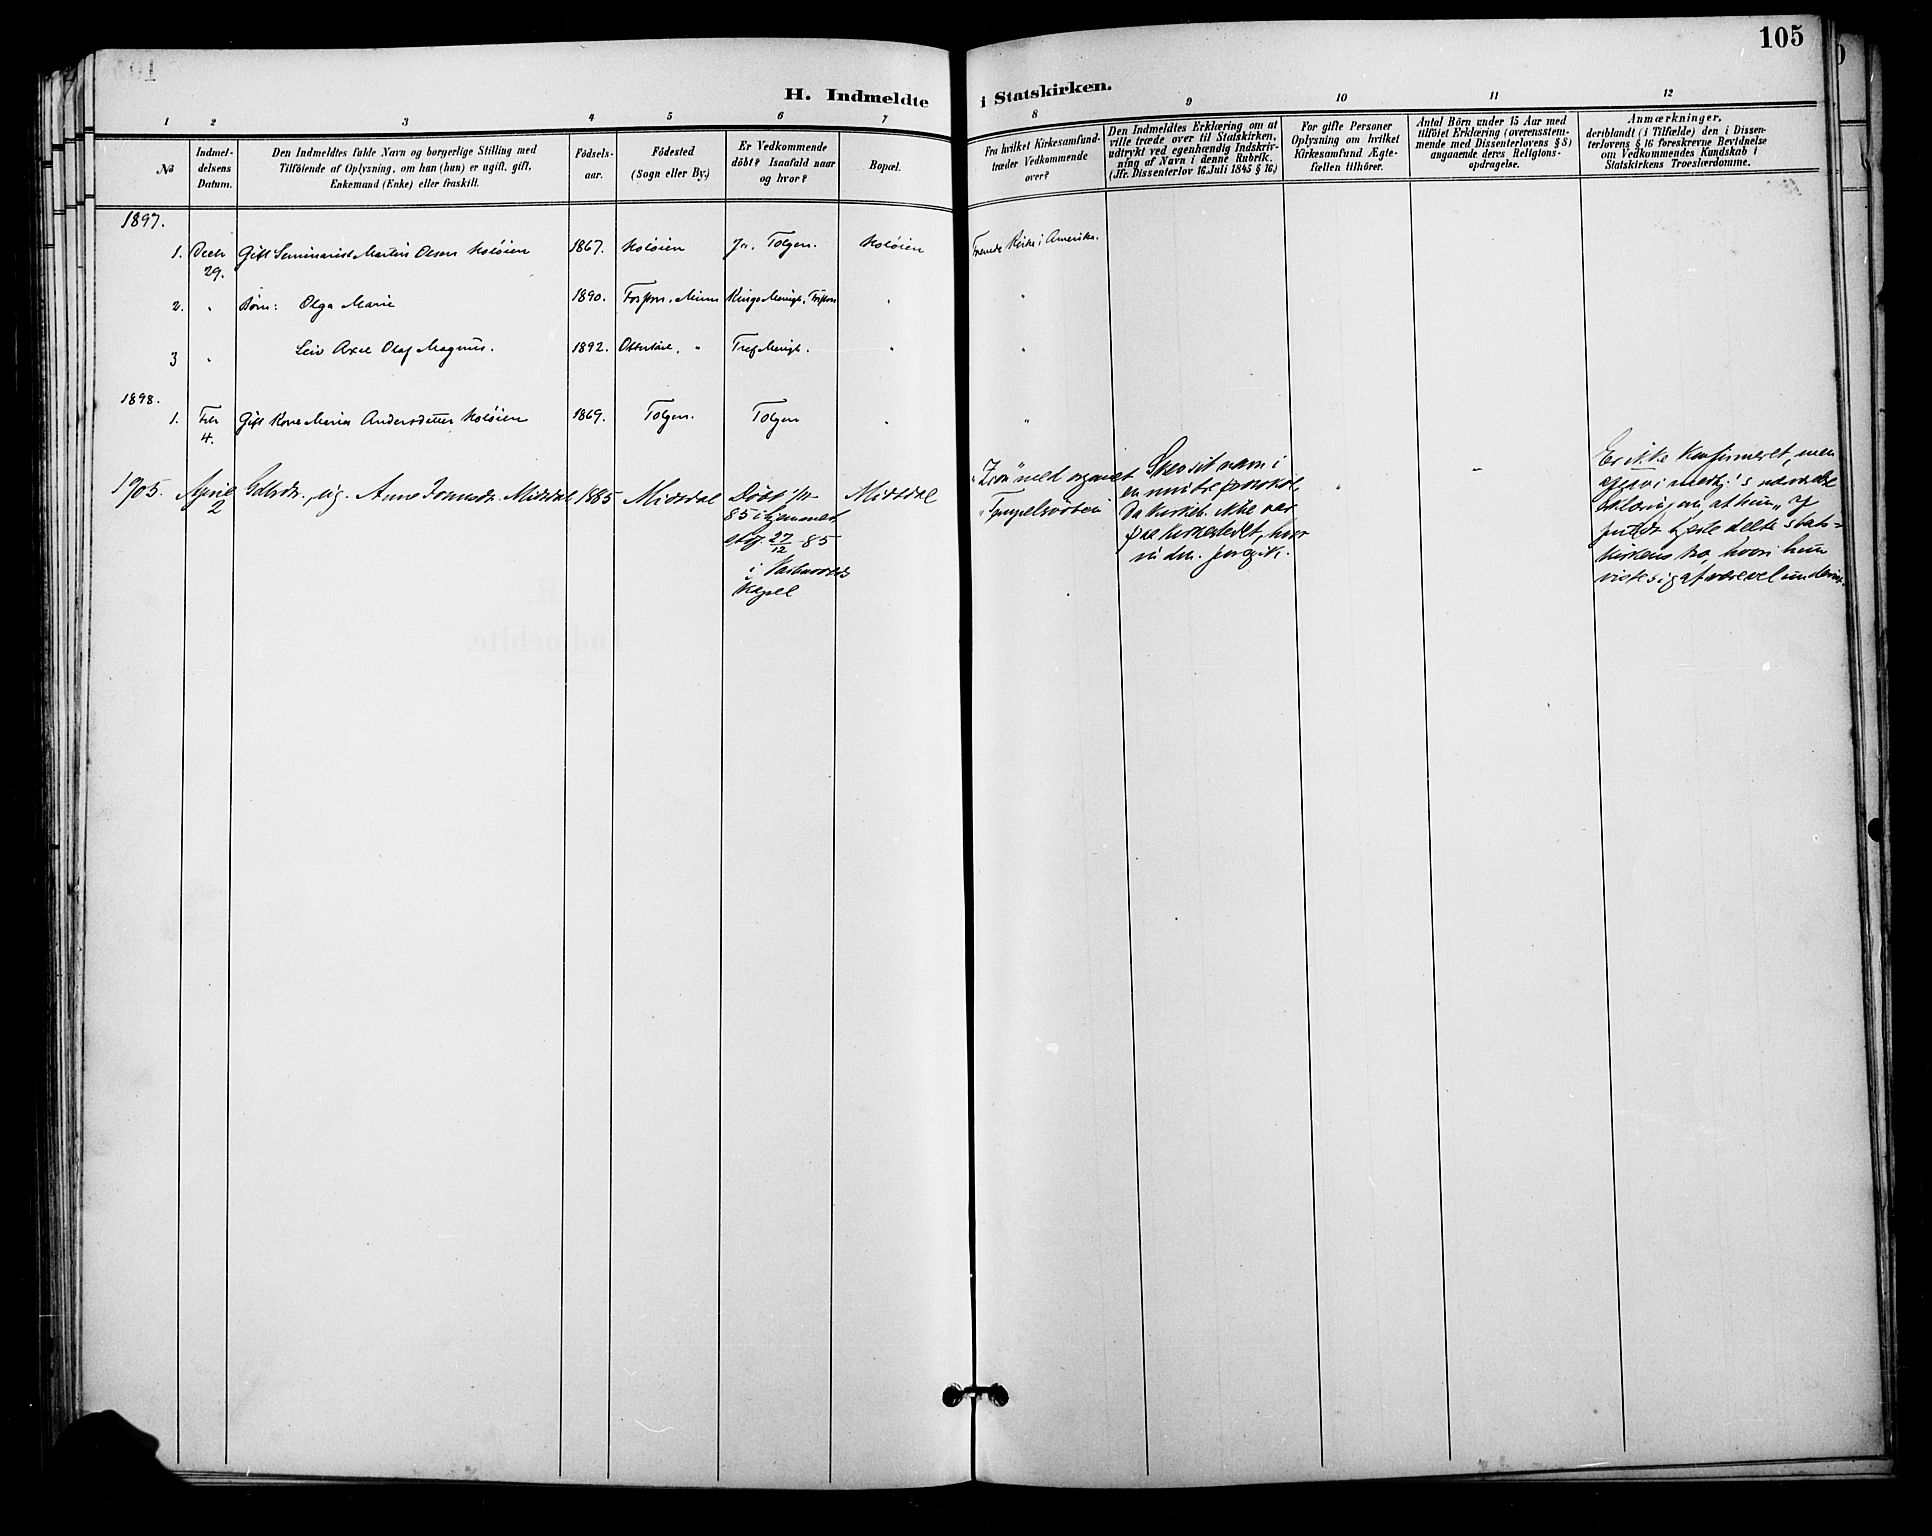 105
H. Indmeldte i Statskirken.
1 2 3 4 5 6 7 8 9 10 11 12
No
Indmel-
delsens
Datum.
Den Indmeldtes fulde Navn og borgerlige Stilling med
Tilföiende af Oplysning, om han (hun) er ugift, gift,
Enkemand (Enke) eller fraskilt.
Födsels-
aar.
Födested
(Sogn eller By.)
Er Vedkommende
döbt? Isaafald naar
og hvor?
Bopæl.
Fra hvilket Kirkesamfund
træder Vedkommende
over?
Den Indmeldtes Erklæring om at
ville træde over til Statskirken,
udtrykt ved egenhændig Indskriv-
ning af Navn i denne Rubrik.
(Jfr. Dissenterlov 16. Juli 1845 § 16)
For gifte Personer
Oplysning om hvilket
Kirkesamfund Ægte-
fællen tilhörer.
Antal Börn under 15 Aar med
tilföiet Erklæring (overensstem-
mende med Dissenterlovens § 8)
angaaende deres Religions-
opdragelse.
Anmærkninger,
deriblandt (i Tilfælde) den i Dissen-
terlovens § 16 foreskrevne Bevidnelse
om Vedkommendes Kundskab i
Statskirkens Troeslærdomme.
1897.
1. Decbr 29. Gift Seminarist Martin Olsen Koløien 1867. Koløien Ja, Tolgen. Koløien Fremde Kirke i Amerika.
2. " Børn: Olga Marie 1890. Minn " "
3 " Leiv Axel Olaf Magnus. 1892. " Menigh. " "
1898.
1. Febr 4. Gift Kone Marie Andersdatter Koløien 1869. Tolgen. Tolgen " "
1905. April 2 Gdbrdr., ug. Anne Jonsdr. Midtdal 1885 Midtdal Døbt
85 i hjemmet
stf. 27/12 - 85
i
Kapel
Midtdal
"Zion" med organet
"Tempelrøsten"
Skrev sit navn i
en mindre protokol,
da kirkeb. ikke var
paa kirkestedet, hvor
forgik.
"
"
Er ikke konfirmeret, men
hun
kirkens tro, hvori hun
viste sig at være vel underv.